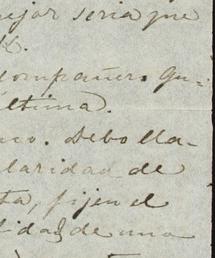 ejor seria que
ompañero Gu-
ultima.
co. Debo lla-
laridad de
ta, fijen el
tidad de una